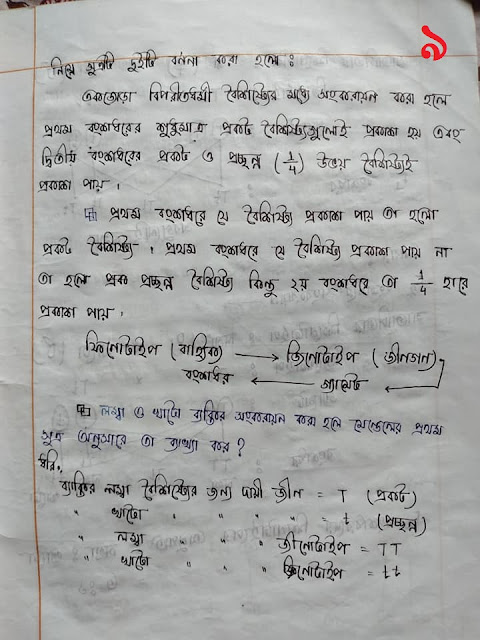 ৯
নিম্নে সূত্রটি দুইটি বর্ননা করা হলো :
একজোড়া বিপরীতধর্মী বৈশিষ্ট্যের মধ্যে সংকরায়ন করা হলে
প্রথম বংশধরের শুধুমাত্র প্রকট বৈশিষ্ট্যগুলোই প্রকাশ হয় এবং
দ্বিতীয় বংশধরের প্রকট ও প্রচ্ছন্ন (1/4) উভয় বৈশিষ্ট্যই
প্রকাশ পায় ।
প্রথম বংশধরে যে বৈশিষ্ট্য প্রকাশ পায় তা হলো
প্রকট বৈশিষ্ট্য । প্রথম বংশধরে যে বৈশিষ্ট্য প্রকাশ পায় না
তা হলে প্রক প্রচ্ছন্ন বৈশিষ্ট্য কিন্তু ২য় বংশধরে তা 1/4 হারে
প্রকাশ পায় ।
ফিনোটাইপ (বাহ্যিক) → জিনোটাইপ (জীনগত)
বংশধর ← গ্যামেট
লম্বা ও খাটো ব্যক্তির সংকরায়ন করা হলে মেন্ডেলের প্রথম
সূত্র অনুসারে তা ব্যাখ্যা কর ?
ধরি,
ব্যক্তির লম্বা বৈশিষ্ট্যের জন্য দায়ী জীন = T (প্রকট)
" খাটো " " " " = t (প্রচ্ছন্ন)
" লম্বা " " " জীনোটাইপ = TT
" খাটো " " " জিনোটাইপ = tt